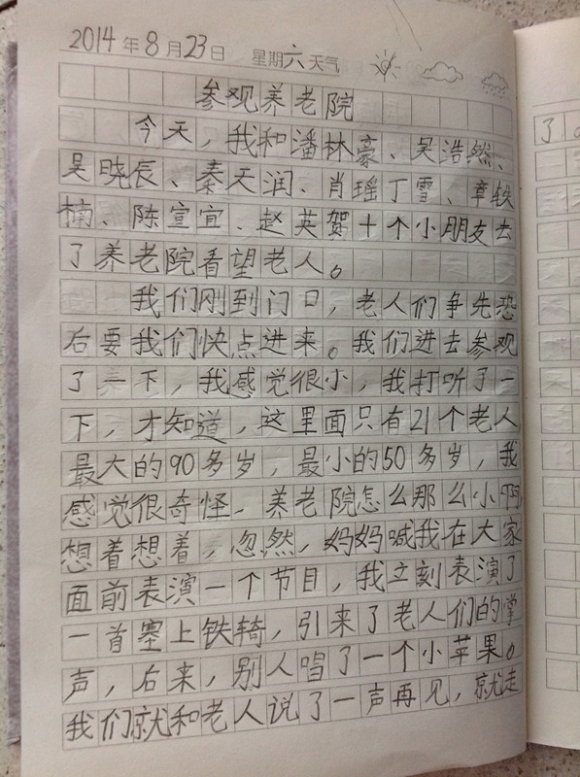 2014年8月23日 星期六天气
参观养老院
今天，我和潘林豪、吴浩然、
吴晓辰、秦天润、肖瑶丁雪、章轶
楠、陈宣宜、赵英贺十个小朋友去
了养老院看望老人。
我们刚到门口，老人们争先恐
后要我们快点进来。我们进去参观
了一下，我感觉很小，我打听了一
下，才知道，这里面只有21个老人，
最大的90多岁，最小的50多岁，我
感觉很奇怪，养老院怎么那么小啊，
想着想着，忽然，妈妈喊我在大家
面前表演一个节目，我立刻表演了
一首塞上铁骑，引来了老人们的掌
声，右来，别人唱了一个小苹果。
我们就和老人说了一声再见，就走
了